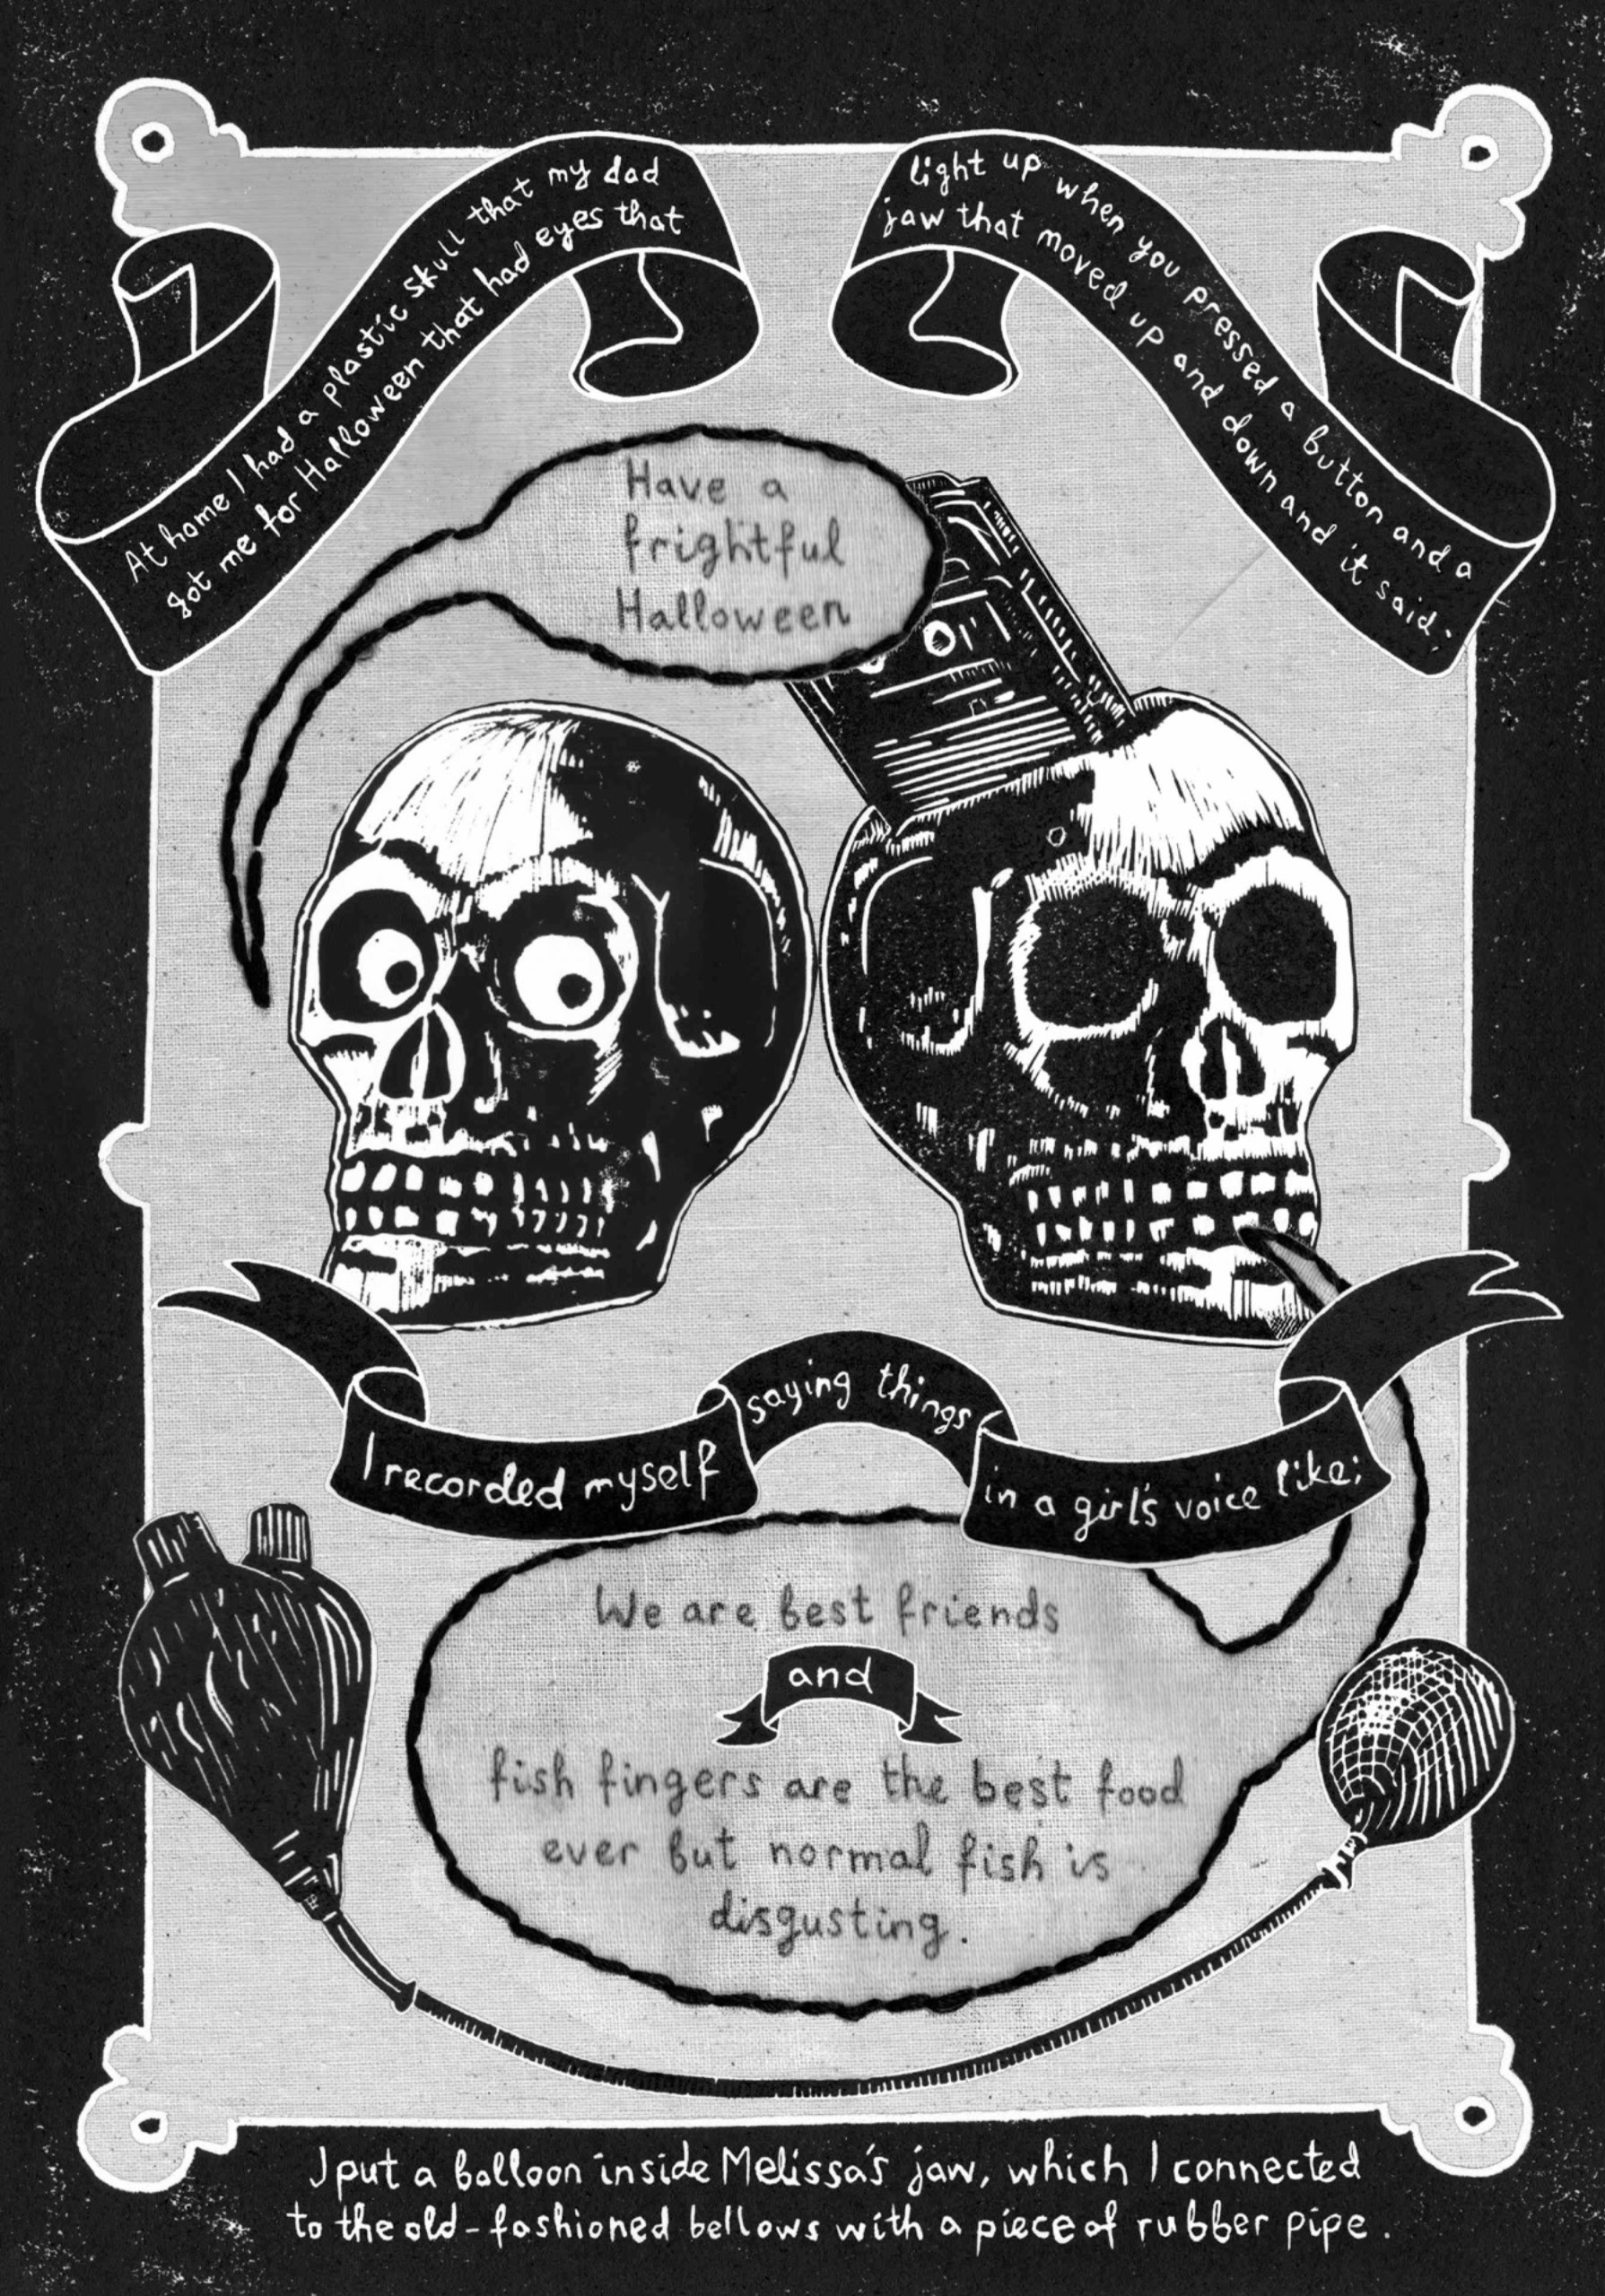 At home I had a plastic skull that my dad
got me for Halloween that had eyes that
light up when you pressed a button and a
jaw that moved up and down and it said:
Have a
frightful
Halloween
I recorded myself
saying things
in a girl's voice like:
We are best friends
and
fish fingers are the best food
ever but normal fish is
disgusting.
I put a balloon inside Melissa's jaw, which I connected
to the old-fashioned bellows with a piece of rubber pipe.